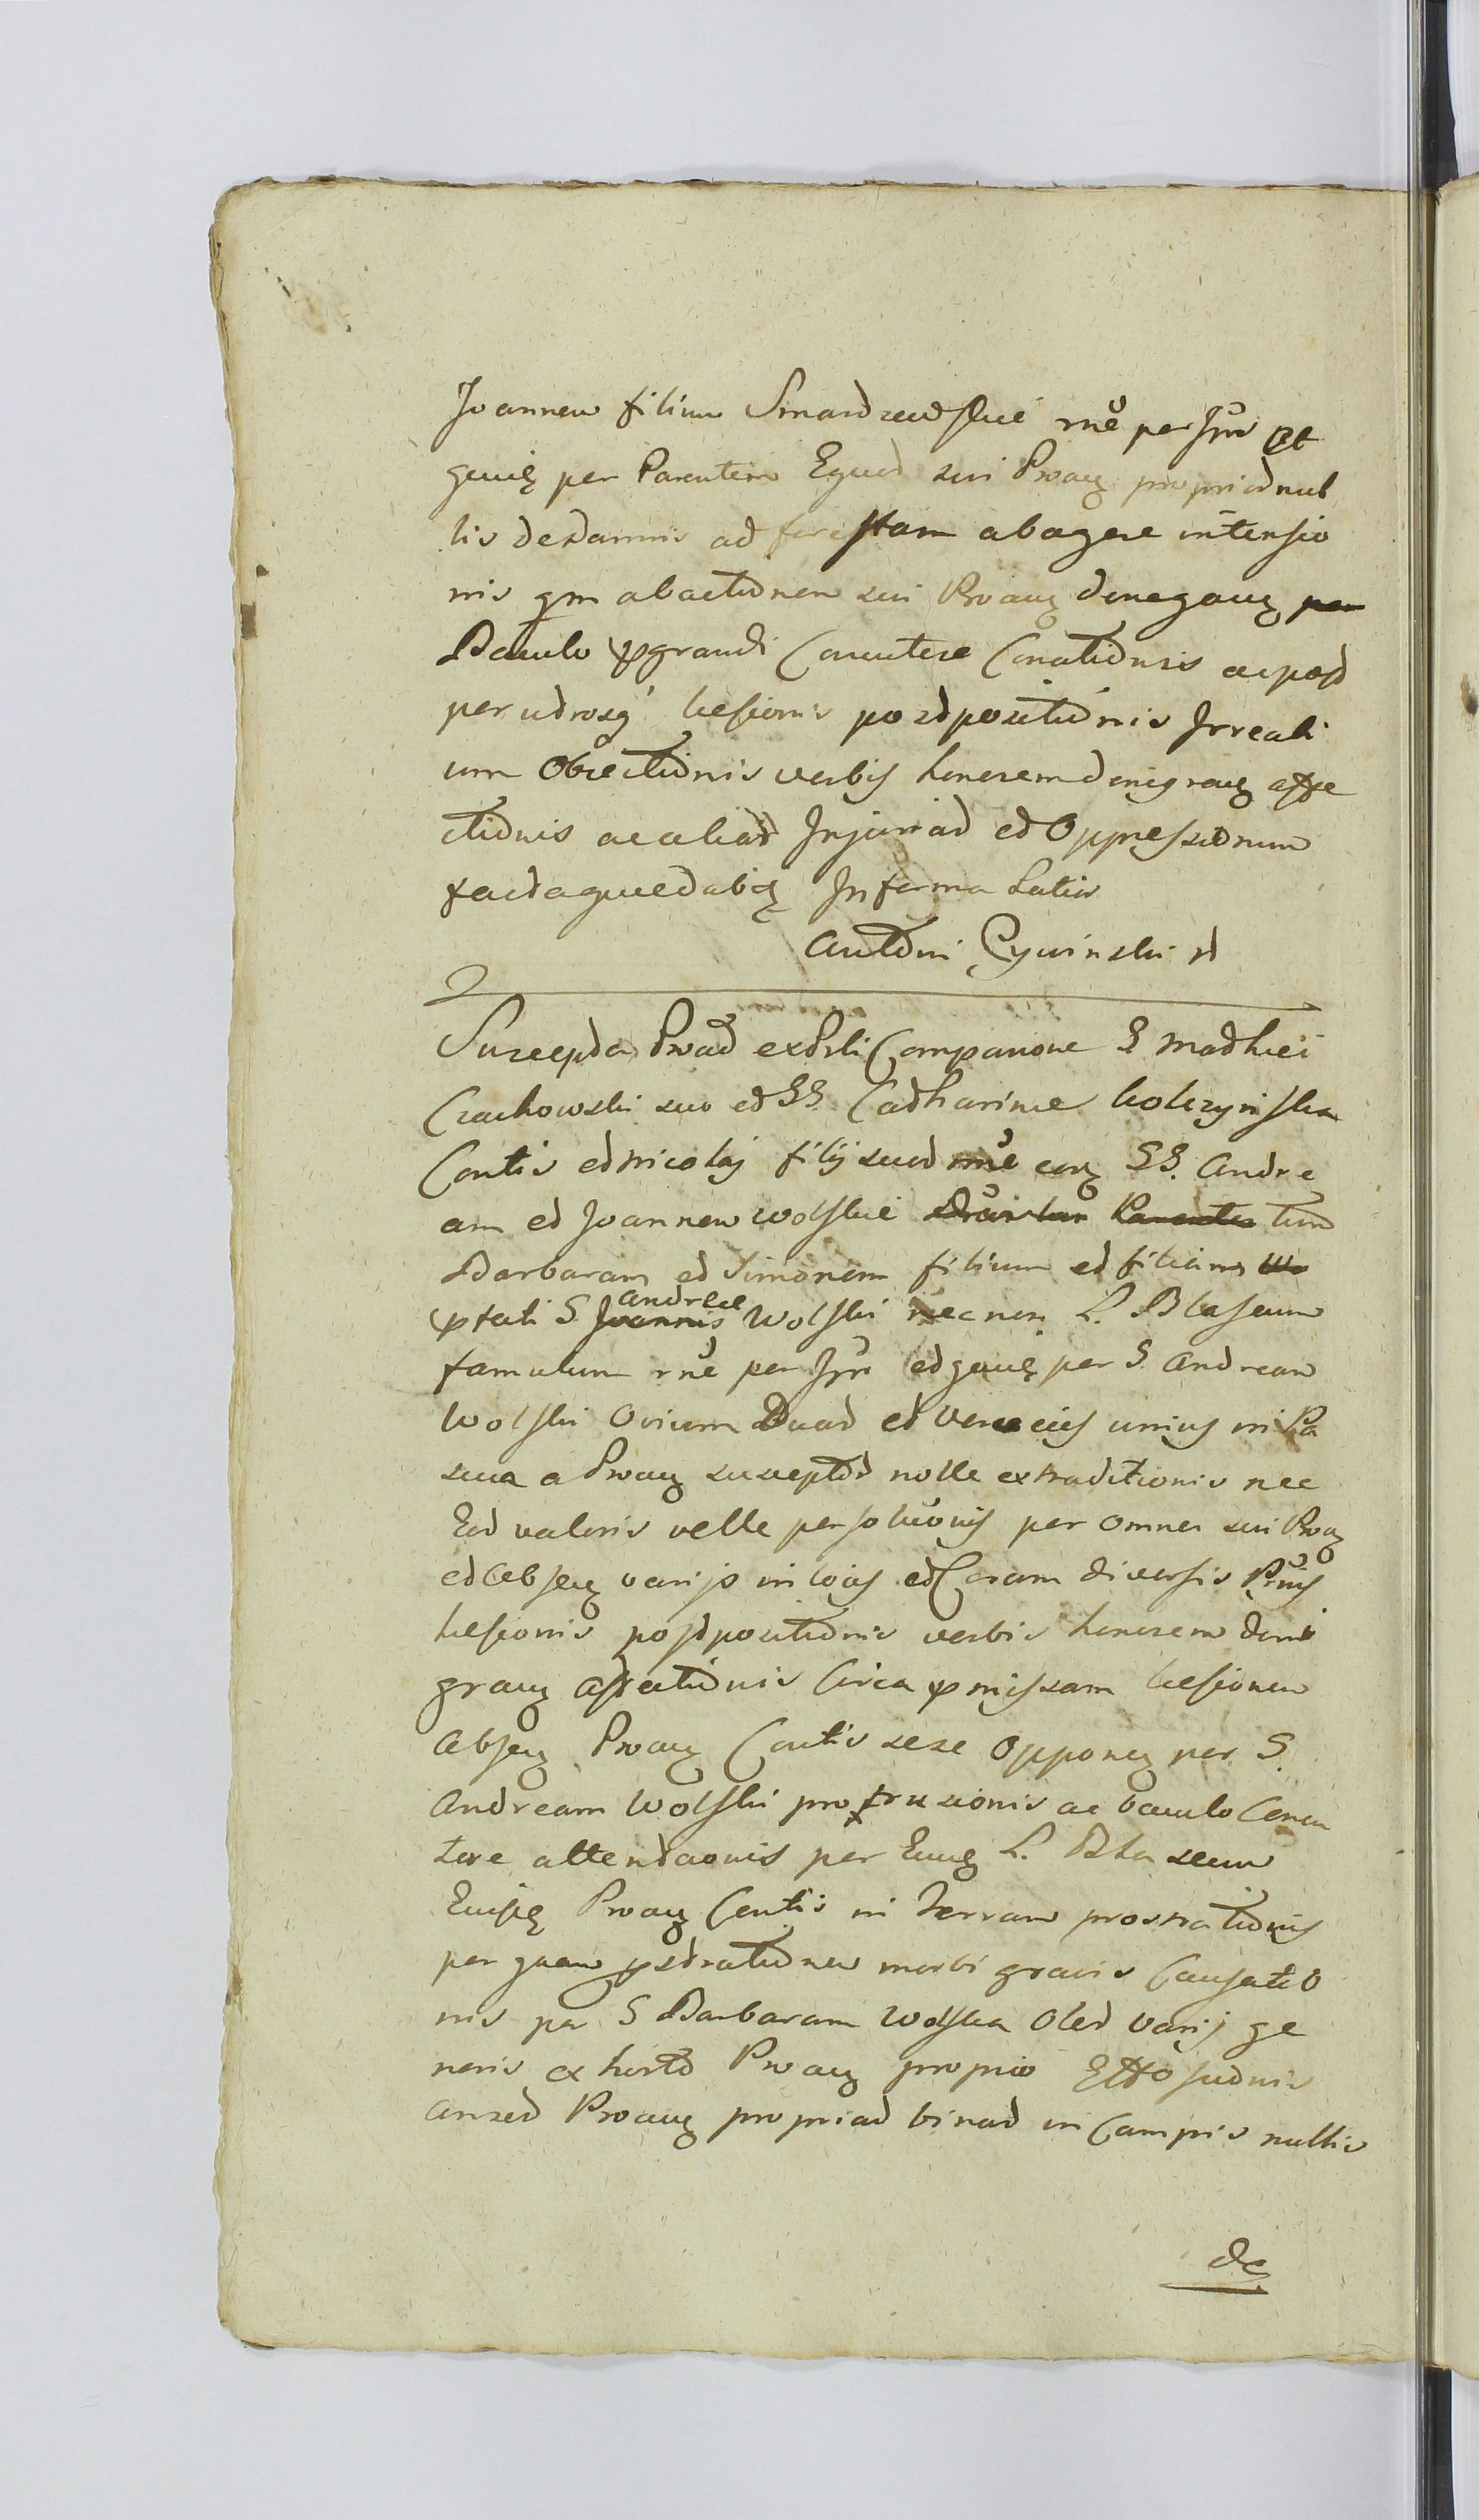 Joannem filium Smardzewskie rne per Ipm et
genuę per Parentem Equor sui Proaę propriornul
lis dedamnis ad forestam abagere intensio
nis qm abactionem sui Proaę denegaoę per
Baculo pgrandi Concutere Conationis ac post
per utrosq lesionis postpositionis Irreali
um Obiectionis verbis honorem denigraoę affe
ctionis ac aliar Injuriar et Oppressionum
factaquedabię In forma Latiu
Antoni Cywinski
Suscepta Proat ex Psli Comparione G Mathiei
Czachowski suo et GG. Catharinae Kolczynska
Contis et Nicolaj filij suor rne conę GG. Andre
am et Joannem Wolskie Parentes tum
Barbaram et Simonem filium et filiam
pfati G. Joannis Andreae Wolski nec non L. Blaseum
famulum rne per Ipm et genuę per G. Andream
Wolski Ovium Duar et Vervecis unius in Pa
scua a Proaę susceptor nolle extraditionis nec
Eor valoris velle persoluonis per omnes sui Proaę
et Absenę varijs in locis et Coram diversis Prnis
lesionis postpositionis verbis honorem deni
graoę affectionis Circa pmissam lesionem
Absenę Proaę Contis sese Opponeę per G.
Andream Wolski protrusionis ac baculo Concu
tere attentaonis per Eunę L. Blaseum
Eiusę Proaę Contis in terram prostrationis
per quam pstrationem morbi gravis Causatio
nis per G Barbaram Wolska Oler varij ge
neris ex horto Proaę proprio Effosionis
anser Proaę propriar binar in Campis nullis
de